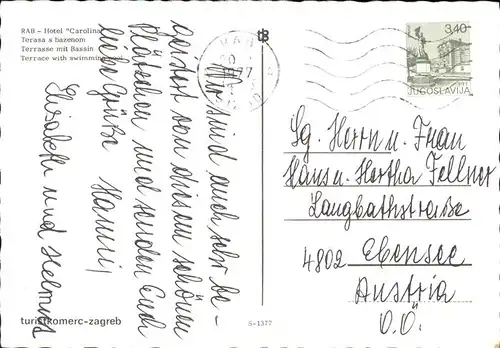 RAB - Hotel "Carolina"
Terasa s bazenom
Terrasse mit Bassin
Terrace with swimming pool
tb
RAB
77
3,40
JUGOSLAVIJA
Wir sind auch sehr be-
geistert von diesem schönen
Plätzchen und senden Euch
liebe Grüße Hanni,
Elisabeth und Helmut
Sg. Herrn u. Frau
Hans u. Hertha Fellner
Langbathstraße
4802 Ebensee
Austria
O.Ö.
turistkomerc-zagreb
S-1377